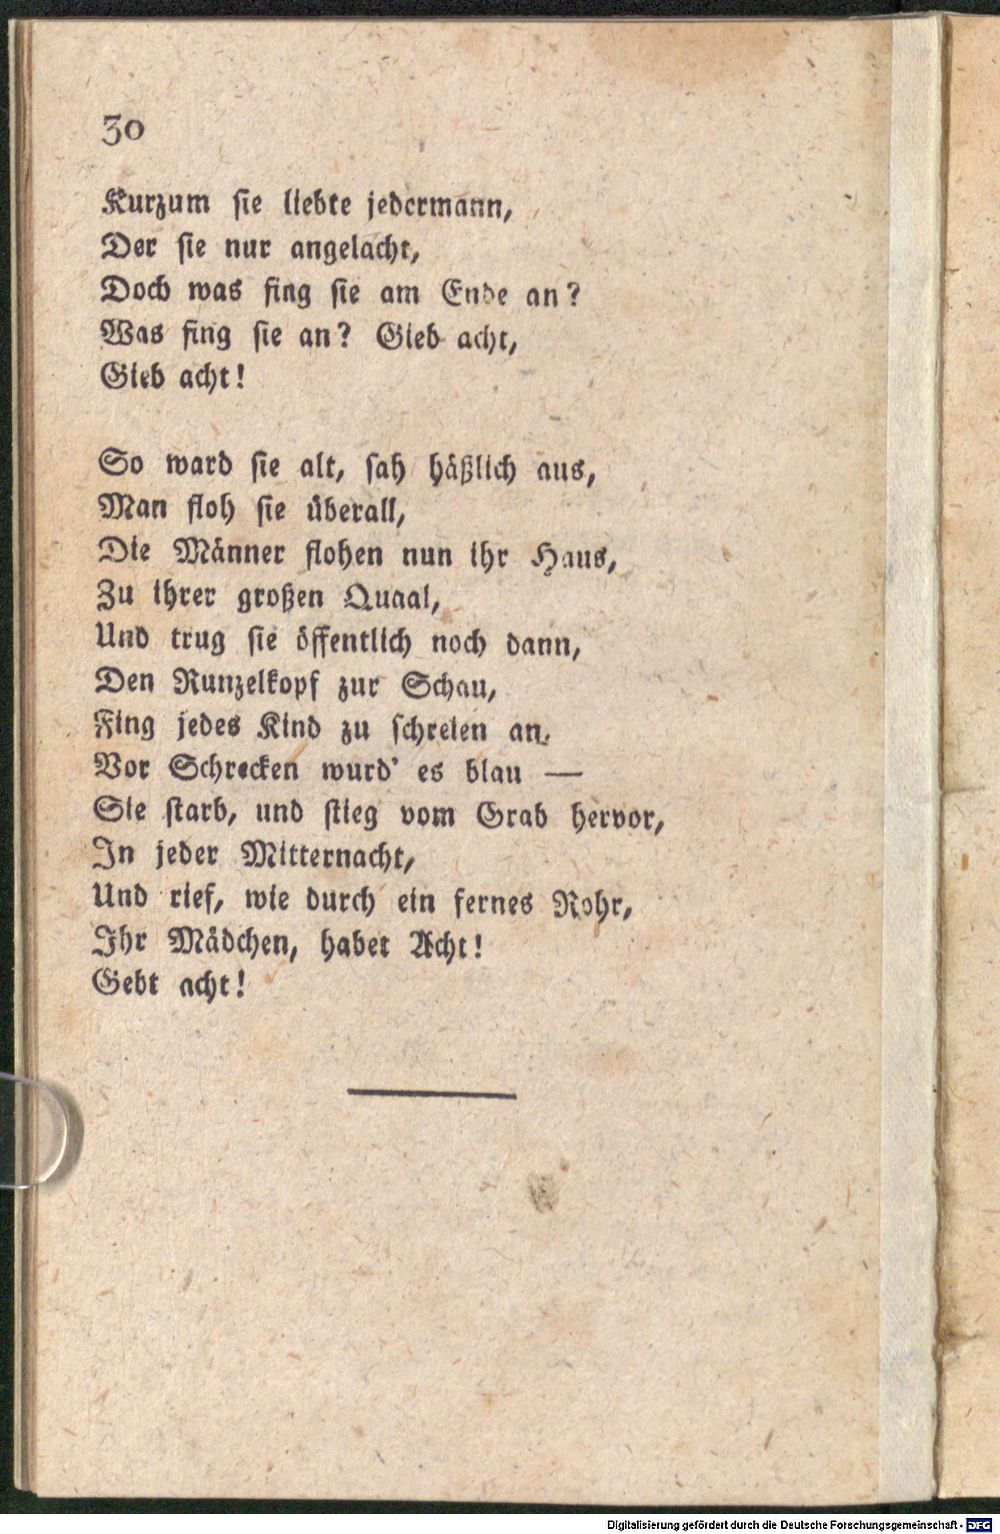 30
Kurzum sie liebte jedermann,
Der sie nur angelacht,
Doch was fing sie am Ende an?
Was fing sie an? Gieb acht,
Gieb acht!
So ward sie alt, sah häßlich aus,
Man floh sie überall,
Die Männer flohen nun ihr Haus,
Zu ihrer großen Quaal,
Und trug sie öffentlich noch dann,
Den Runzelkopf zur Schau,
Fing jedes Kind zu schreien an,
Vor Schrecken wurd' es blau —
Sie starb, und stieg vom Grab hervor,
In jeder Mitternacht,
Und rief, wie durch ein fernes Rohr,
Ihr Mädchen, habet Acht!
Gebt acht!
Digitalisierung gefördert durch die Deutsche Forschungsgemeinschaft - DFG